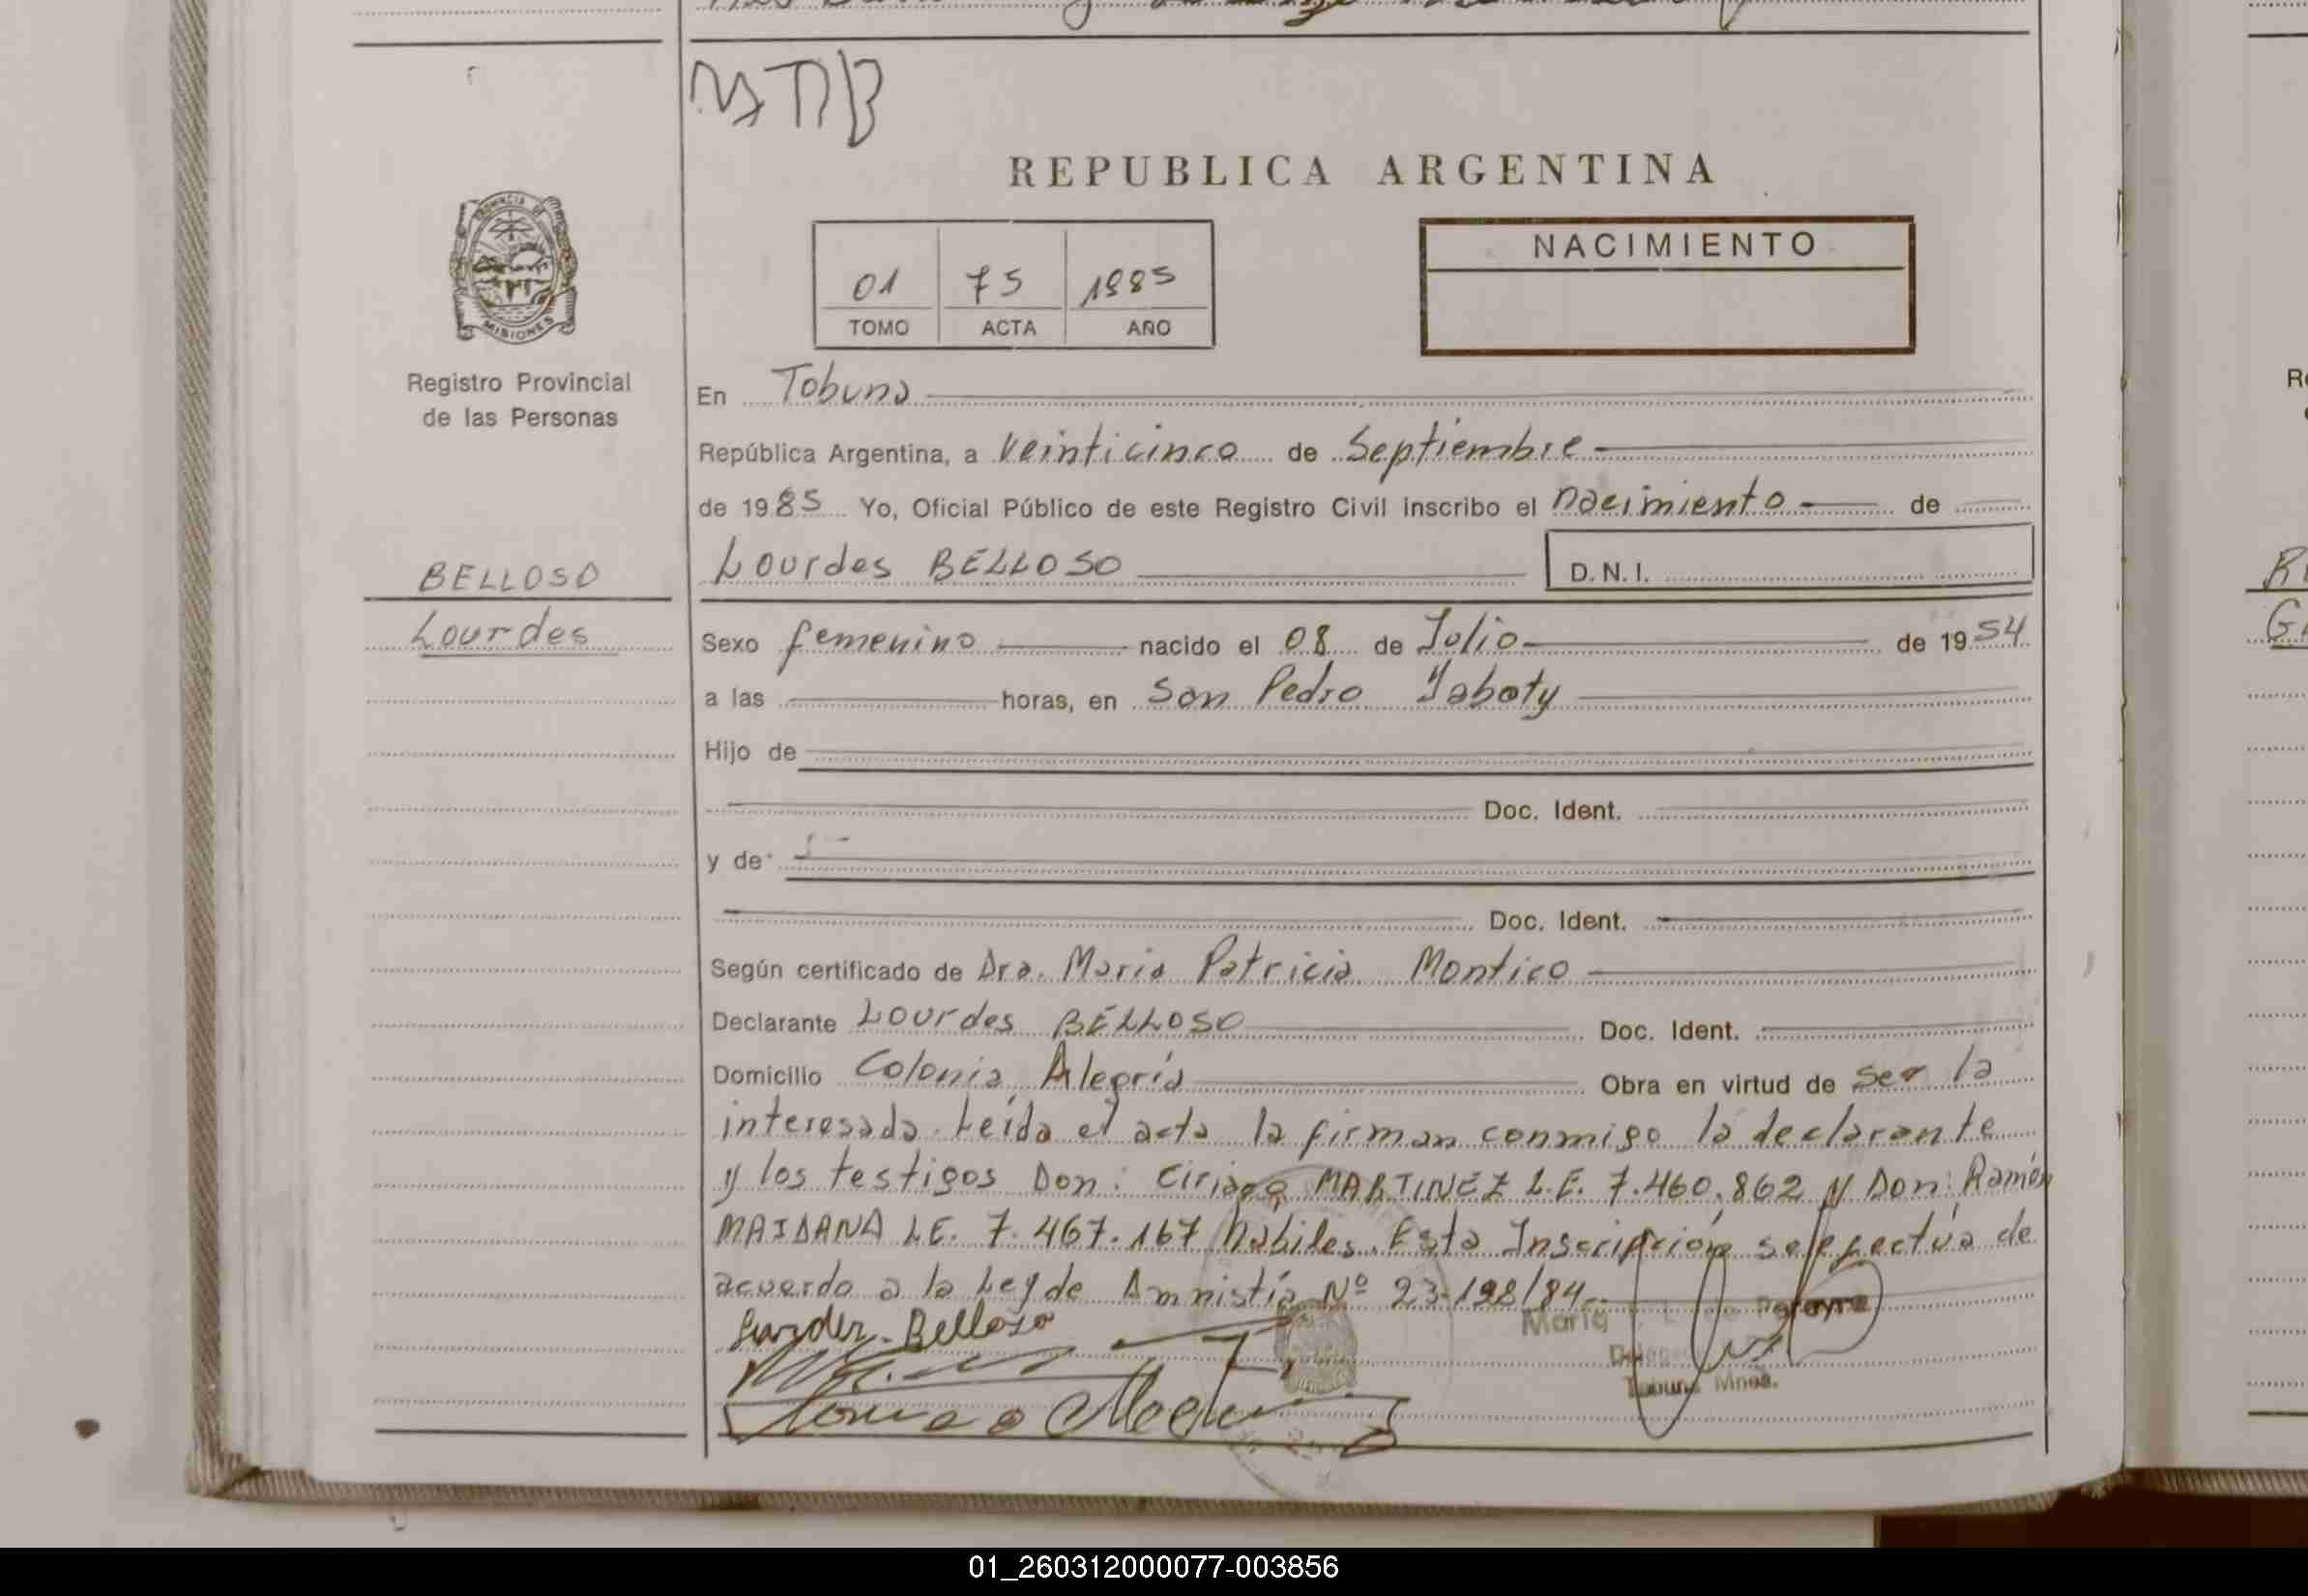 REPUBLICA ARGENTINA
PROVINCIA DE
MISIONES
01 75 1985
TOMO ACTA AÑO
NACIMIENTO
Registro Provincial
de las Personas
En Tobuna
República Argentina, a Veinticinco de Septiembre
de 1985 Yo, Oficial Público de este Registro Civil inscribo el nacimiento de
BELLOSO
Lourdes
Lourdes BELLOSO D.N.I.
Sexo femenino nacido el 08 de Julio de 1954
a las horas, en San Pedro Yaboty
Hijo de
Doc. Ident.
y de
Doc. Ident.
Según certificado de Dra. Maria Patricia Montico
Declarante Lourdes BELLOSO Doc. Ident.
Domicilio Colonia Alegría Obra en virtud de ser la
interesada. Leída el acta la firman conmigo la declarante
y los testigos Don: Ciriaco MARTINEZ L.E. 7.460.862 y Don: Ramón
MAIDANA L.E. 7.467.167 hábiles. Esta Inscripción se efectúa de
acuerdo a la Ley de Amnistía Nº 23.198/84.
Belloso
María Pereyra
Tobuna Mnes.
01_260312000077-003856